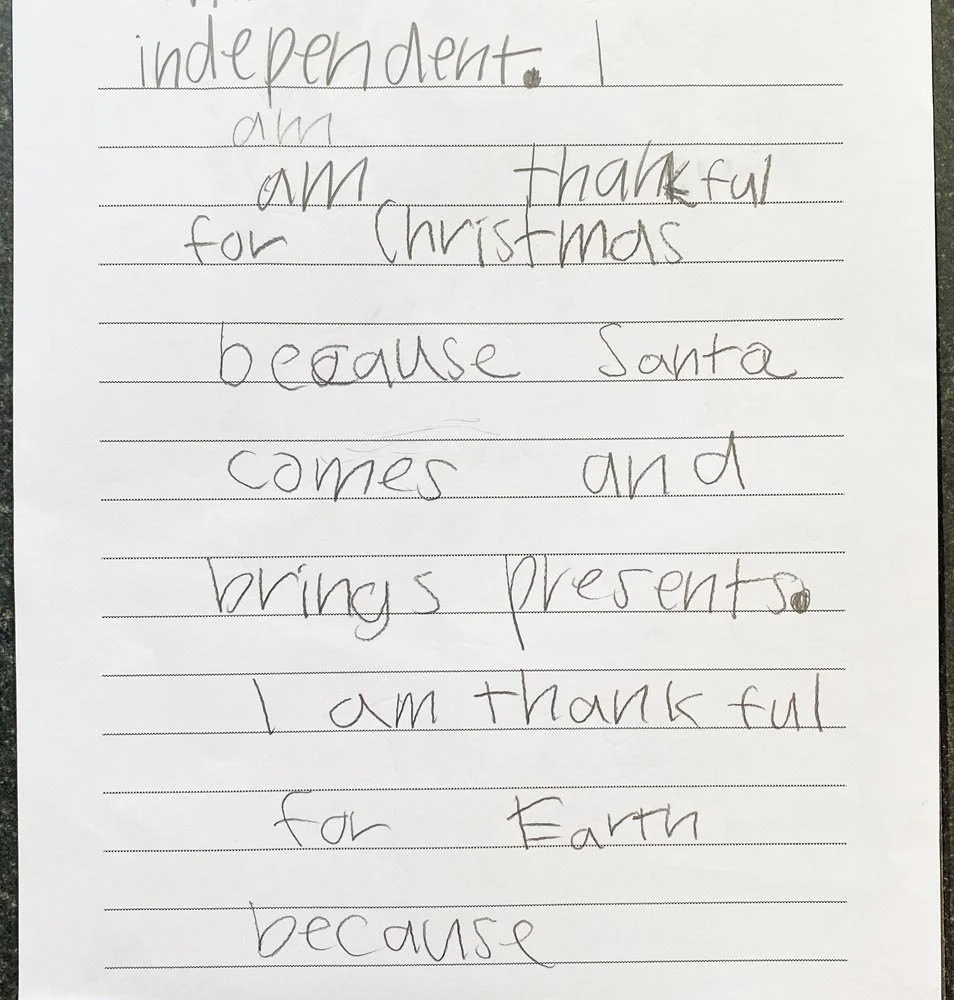 independent. I
am
am thankful
for Christmas
because Santa
comes and
brings presents.
I am thankful
for Earth
because